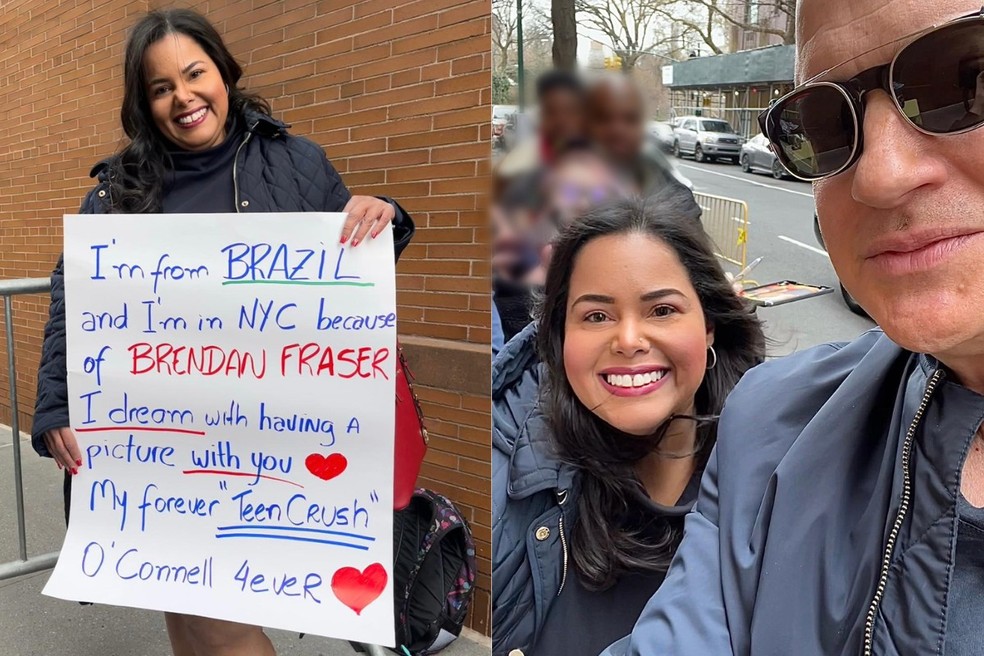 I'm from BRAZIL
and I'm in NYC because
of BRENDAN FRASER
I dream with having A
picture with you
My forever "Teen Crush"
O'Connell 4ever